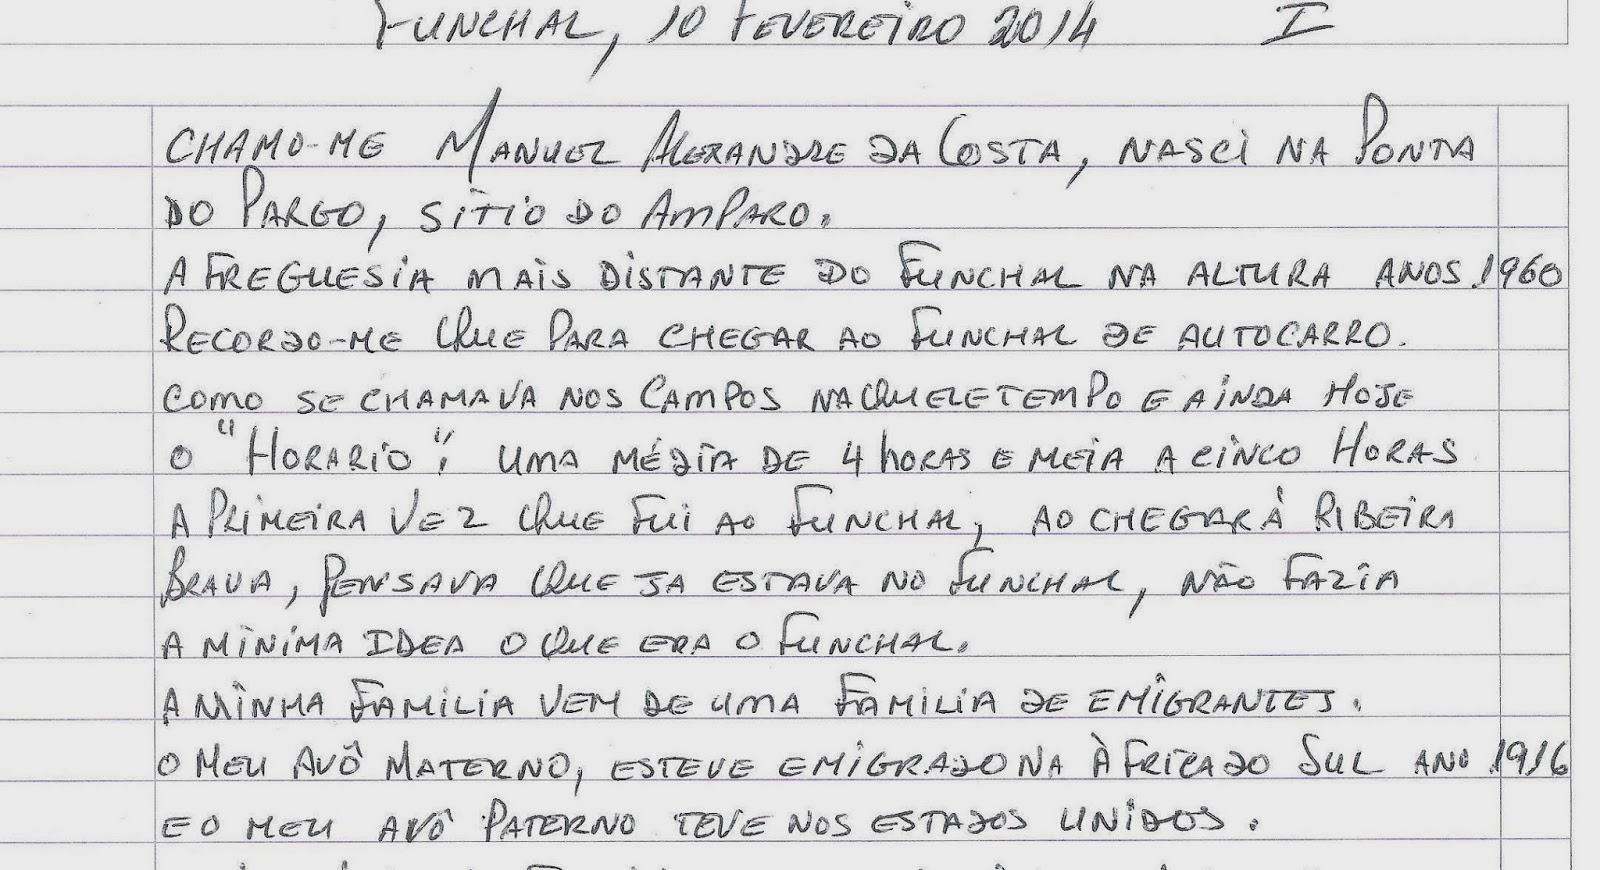 FUNCHAL, 10 FEVEREIRO 2014 I
CHAMO-ME MANUEL ALEXANDRE DA COSTA, NASCI NA PONTA
DO PARGO, SÍTIO DO AMPARO.
A FREGUESIA MAIS DISTANTE DO FUNCHAL NA ALTURA ANOS.1960
RECORDO-ME QUE PARA CHEGAR AO FUNCHAL DE AUTOCARRO.
COMO SE CHAMAVA NOS CAMPOS NAQUELE TEMPO E AINDA HOJE
O "HORARIO", UMA MÉDIA DE 4 HORAS E MEIA A CINCO HORAS
A PRIMEIRA VEZ QUE FUI AO FUNCHAL, AO CHEGAR À RIBEIRA
BRAVA, PENSAVA QUE JA ESTAVA NO FUNCHAL, NÃO FAZIA
A MINIMA IDEA O QUE ERA O FUNCHAL.
A MINHA FAMILIA VEM DE UMA FAMILIA DE EMIGRANTES.
O MEU AVÔ MATERNO, ESTEVE EMIGRADO NA ÀFRICA DO SUL ANO 1916
E O MEU AVÔ PATERNO TEVE NOS ESTADOS UNIDOS.